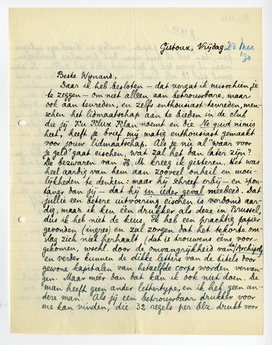 Gistoux, Vrijdag 23 Mei '30
Beste Wynand,
Daar ik heb besloten - dat vergat ik misschien je
te zeggen - om niet alleen aan betrouwbare, maar
ook aan tevreden, en zelfs enthousiast-tevreden, men-
schen het lidmaatschap aan te bieden in de club
die bij Ku Klux Klan noemt en die
heet, heeft je brief mij matig enthousiast gemaakt
voor jouw lidmaatschap. Als je nu al voor
je geld gaat eischen, wat zal het dan later zijn?
De bezwaren van M. kreeg ik gisteren. Het was
heel aardig van hem aan zooveel onheil en moei-
lijkheden te denken, maar hij schreef erbij - en spon-
taner dan jij - dat hij in ieder geval meedeed. Dat
jullie een betere uitvoering eischen is verdomd aar-
dig, maar ik ken één drukker als deze in Brussel,
die ik het niet deed. Ik heb een prachtig papier
gevonden (ingres) en zal zorgen dat het tekorte om-
slag zich niet herhaalt (het is trouwens eens voor-
gekomen, mocht door de omvangrijkheid van
en verder kunnen de dikke letters van de titels door
gewone kapitalen van hetzelfde corps worden vervan-
gen. Maar meer dan dat kan ik ook niet doen. De
man heeft geen ander lettertype, en ik heb geen an-
dere man. Als jij een betrouwbaar drukker voor
me kan vinden, die 32 regels per blz. drukt voor